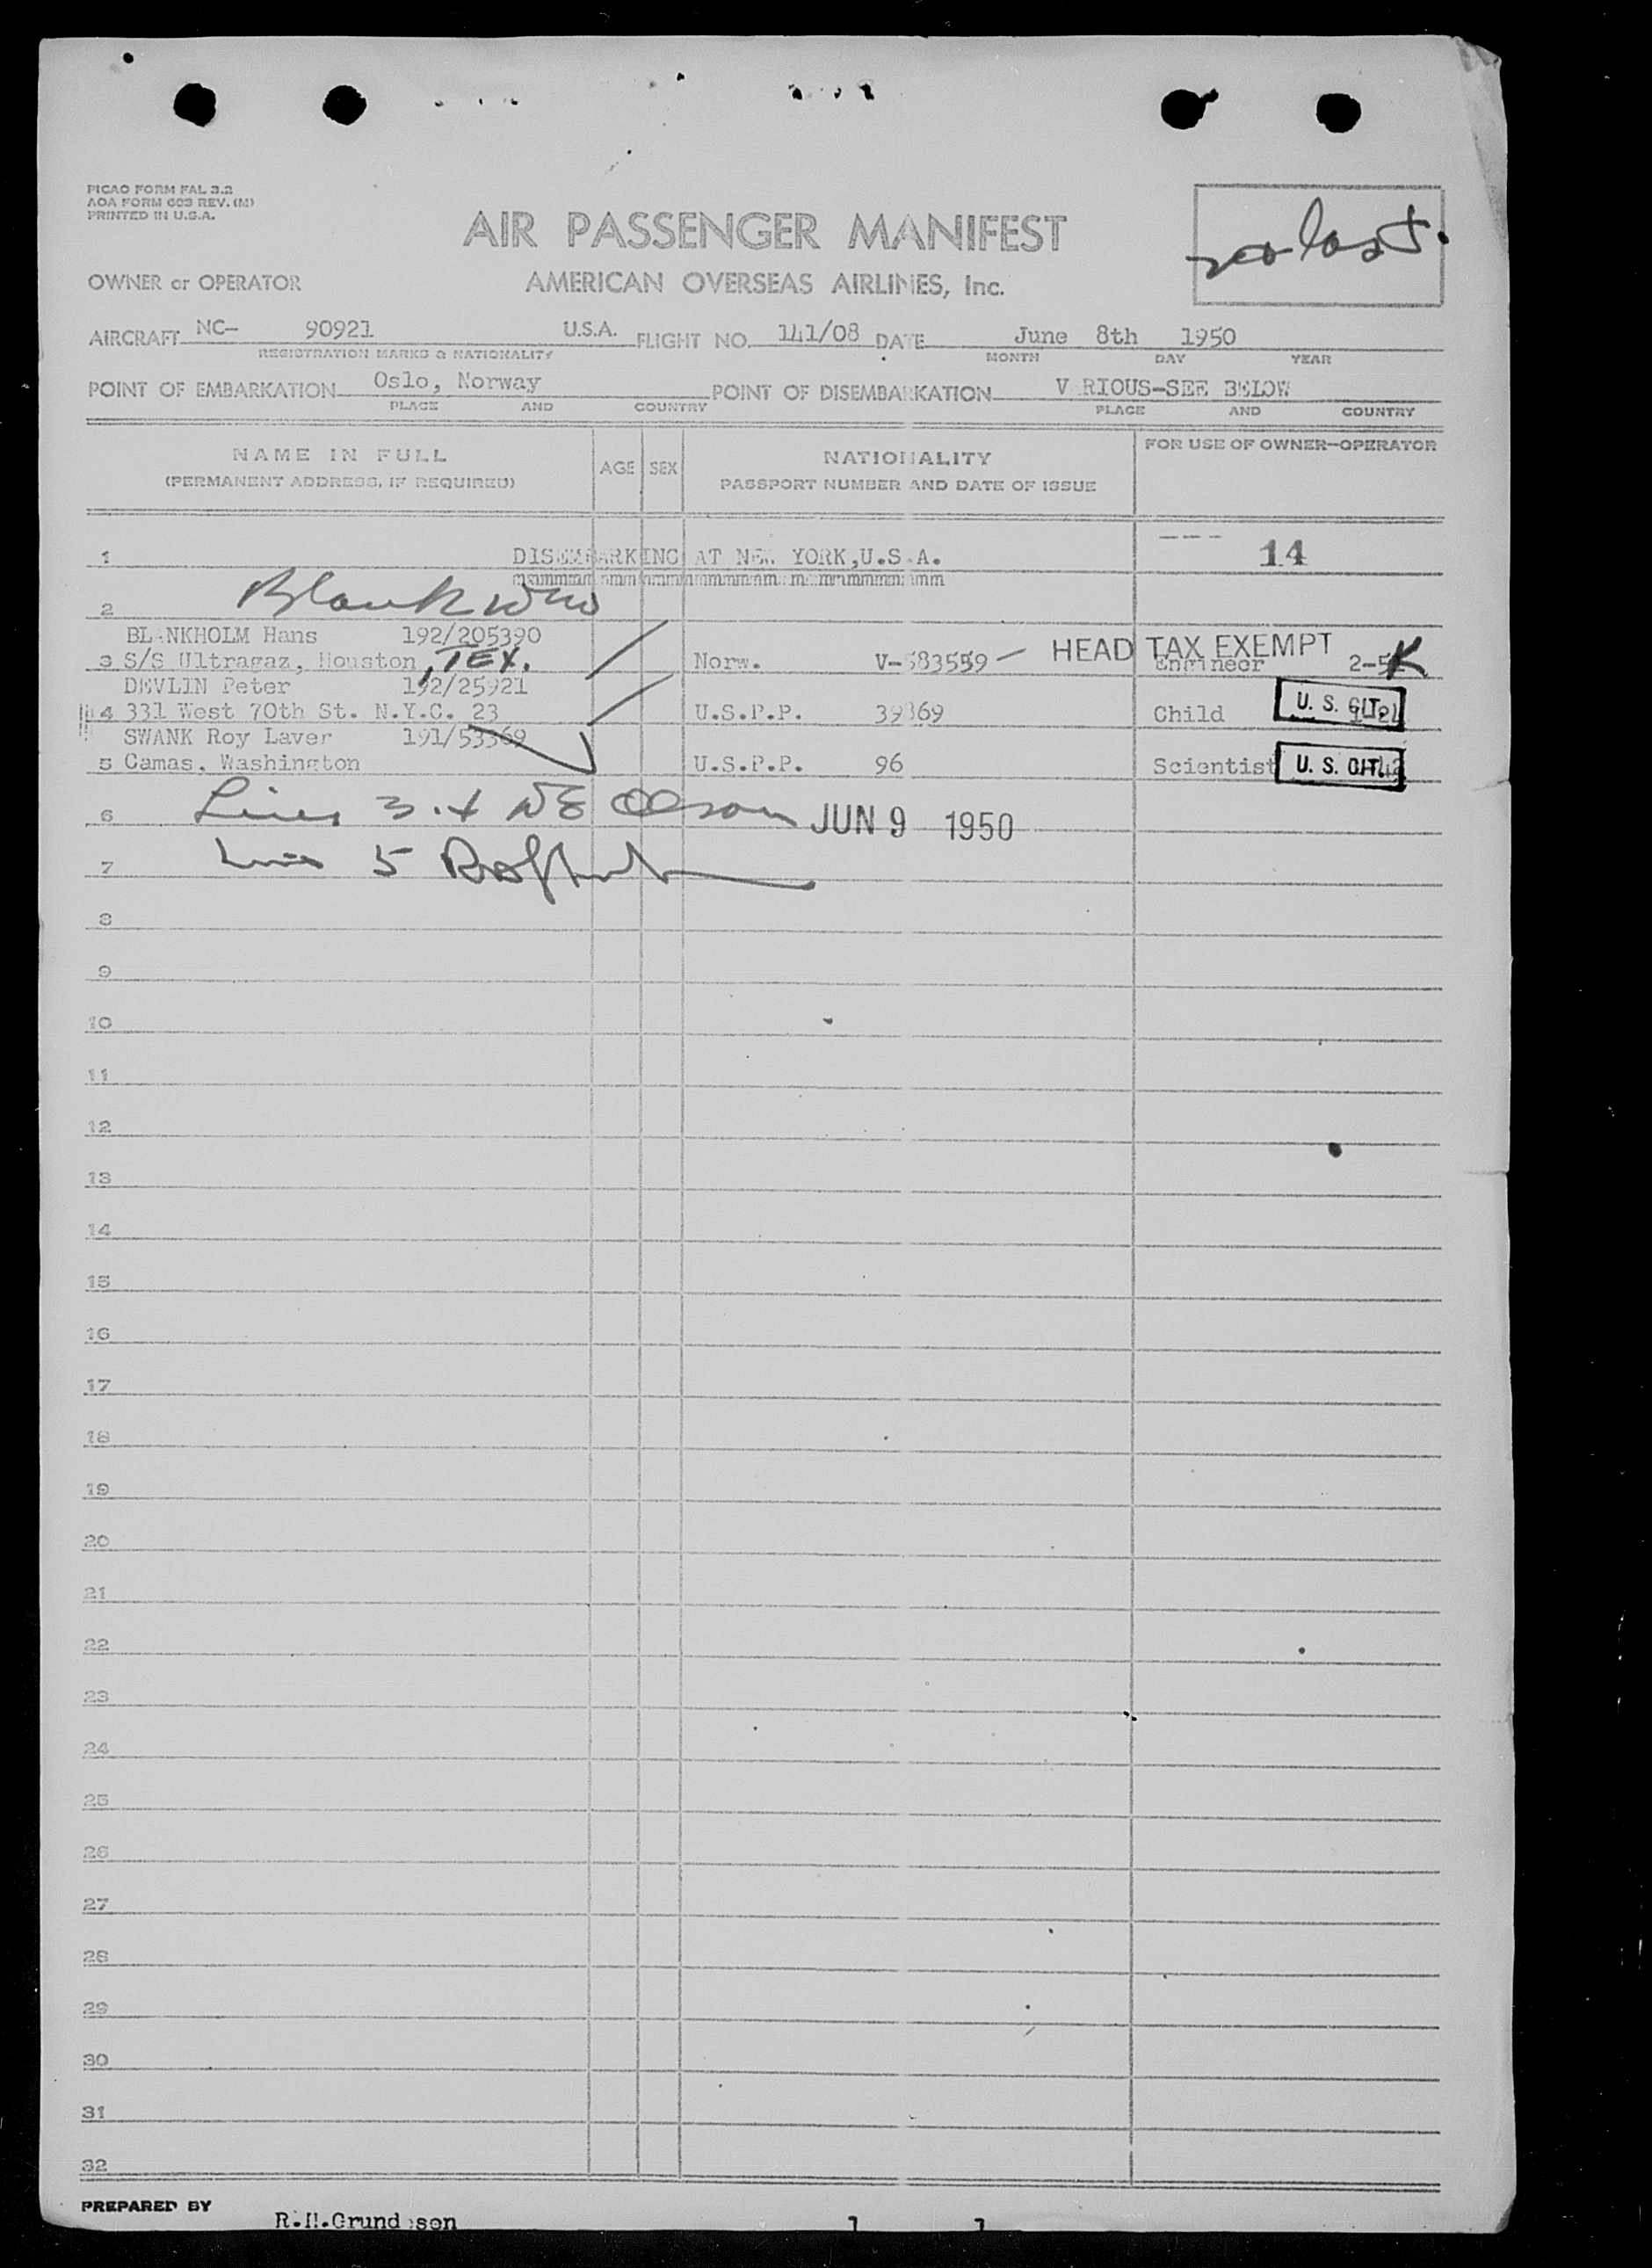 PICAO FORM FAL 3.2
AOA FORM 603 REV. (M)
PRINTED IN U.S.A.
AIR PASSENGER MANIFEST
OWNER or OPERATOR AMERICAN OVERSEAS AIRLINES, Inc.
AIRCRAFT NC- 90921 U.S.A. FLIGHT NO. 141/08 DATE June 8th 1950
REGISTRATION MARKS & NATIONALITY MONTH DAY YEAR
POINT OF EMBARKATION Oslo, Norway POINT OF DISEMBARKATION V RIOUS-SEE BELOW
PLACE AND COUNTRY PLACE AND COUNTRY
NAME IN FULL AGE SEX NATIONALITY FOR USE OF OWNER-OPERATOR
(PERMANENT ADDRESS, IF REQUIRED) PASSPORT NUMBER AND DATE OF ISSUE
1 DISEMBARKING AT NEW YORK,U.S.A. 14
2
BLANKHOLM Hans 192/205390
3 S/S Ultragaz, Houston, TEX. Norw. V-583559 HEAD TAX EXEMPT Engineer K
DEVLIN Peter 192/25921
4 331 West 70th St. N.Y.C. 23 U.S.P.P. 39369 Child U. S. CIT.
SWANK Roy Laver 191/53369
5 Camas, Washington U.S.P.P. 96 Scientist U. S. CIT.
6 Lines 3.4 Olson JUN 9 1950
7 5
8
9
10
11
12
13
14
15
16
17
18
19
20
21
22
23
24
25
26
27
28
29
30
31
32
PREPARED BY